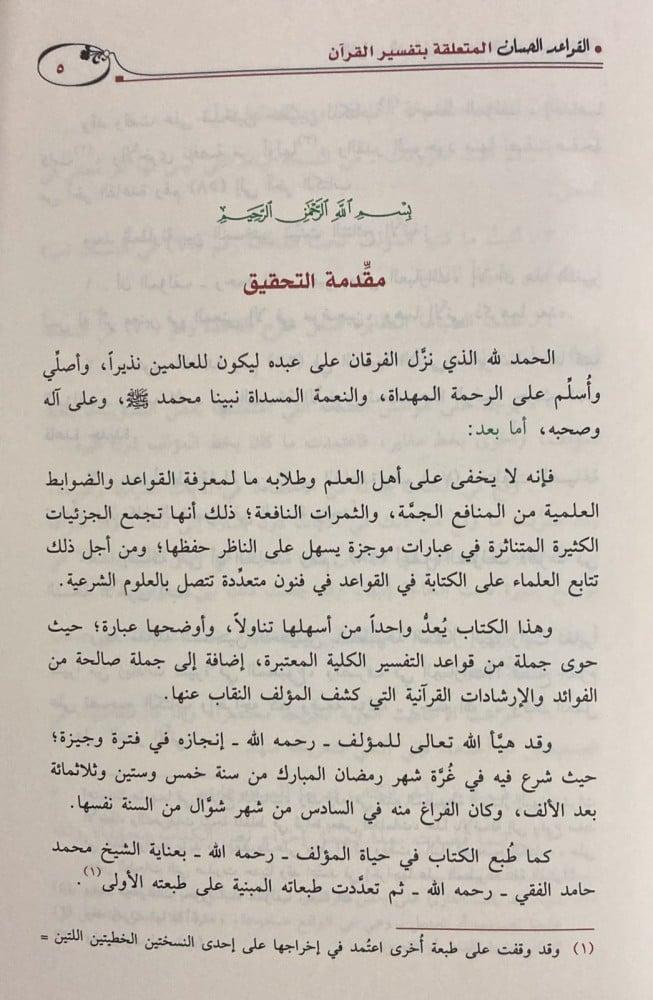 القواعد الحسان المتعلقة بتفسير القرآن
٥
بِسْمِ اللَّهِ الرَّحْمَٰنِ الرَّحِيمِ
مقدِّمة التحقيق
الحمد لله الذي نزَّل الفرقان على عبده ليكون للعالمين نذيراً، وأصلِّي
وأُسلِّم على الرحمة المهداة، والنعمة المسداة نبينا محمد ﷺ، وعلى آله
وصحبه، أما بعد:
فإنه لا يخفى على أهل العلم وطلابه ما لمعرفة القواعد والضوابط
العلمية من المنافع الجمَّة، والثمرات النافعة؛ ذلك أنها تجمع الجزئيات
الكثيرة المتناثرة في عبارات موجزة يسهل على الناظر حفظها؛ ومن أجل ذلك
تتابع العلماء على الكتابة في القواعد في فنون متعدِّدة تتصل بالعلوم الشرعية.
وهذا الكتاب يُعدُّ واحداً من أسهلها تناولاً، وأوضحها عبارة؛ حيث
حوى جملة من قواعد التفسير الكلية المعتبرة، إضافة إلى جملة صالحة من
الفوائد والإرشادات القرآنية التي كشف المؤلف النقاب عنها.
وقد هيَّأ الله تعالى للمؤلف ـ رحمه الله ـ إنجازه في فترة وجيزة؛
حيث شرع فيه في غُرَّة شهر رمضان المبارك من سنة خمس وستين وثلاثمائة
بعد الألف، وكان الفراغ منه في السادس من شهر شوَّال من السنة نفسها.
كما طُبع الكتاب في حياة المؤلف ـ رحمه الله ـ بعناية الشيخ محمد
حامد الفقي ـ رحمه الله ـ ثم تعدَّدت طبعاته المبنية على طبعته الأولى(١).
(١) وقد وقفت على طبعة أُخرى اعتُمد في إخراجها على إحدى النسختين الخطيتين اللتين =